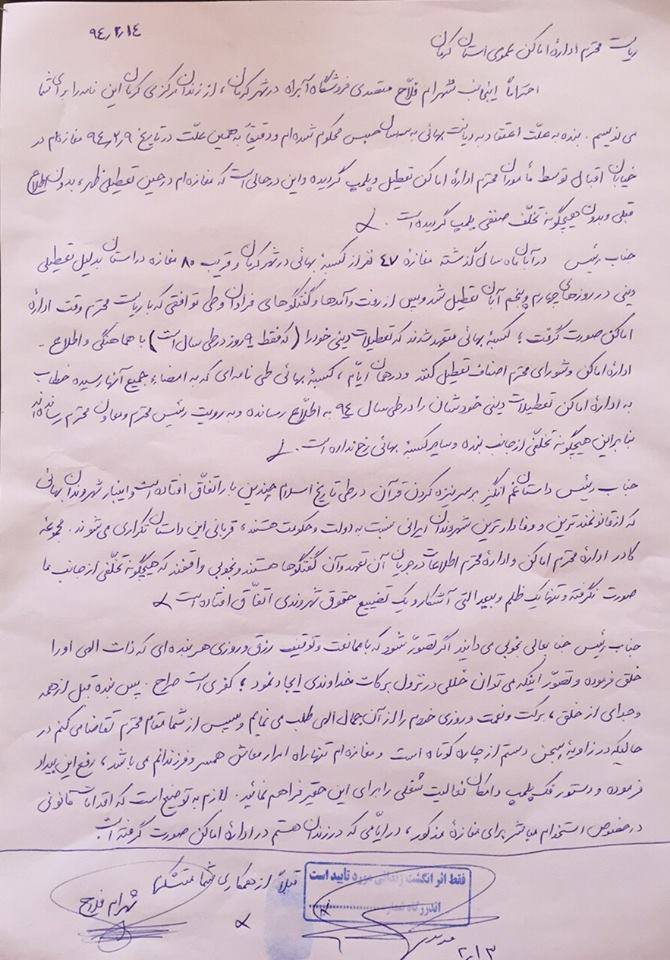 ۹۴/۲/۱۴
ریاست محترم ادارهٔ اماکن عمومی استان کرمان
احتراماً اینجانب شهرام فلاح متصدی فروشگاه آبراه در شهر کرمان، از زندان مرکزی کرمان این نامه را برای شما
می‌نویسم. بنده به علّت اعتقاد به دیانت بهائی به سه سال حبس محکوم شده‌ام و دقیقاً به همین علّت در تاریخ ۹۴/۲/۹ مغازه‌ام در
خیابان اقبال توسط مأموران محترم ادارهٔ اماکن تعطیل و پلمپ گردیده و این در حالی است که مغازه‌ام در حین تعطیلی ظهر، بدون اطلاع
قبلی و بدون هیچگونه تخلّف صنفی پلمپ گردیده است.
جناب رئیس در آبان ماه سال گذشته مغازهٔ ۴۷ نفر از کسبهٔ بهائی در شهر کرمان و قریب ۸۰ مغازه در استان بدلیل تعطیلی
دینی در روزهای چهارم و پنجم آبان تعطیل شد و پس از رفت و آمدها و گفتگوهای فراوان و طی توافقی که با ریاست محترم وقت ادارهٔ
اماکن صورت گرفت؛ کسبهٔ بهائی متعهد شدند که تعطیلات دینی خود را (که فقط ۹ روز در طی سال است) با هماهنگی و اطلاع
ادارهٔ اماکن و شورای محترم اصناف تعطیل کنند و در همان ایّام، کسبهٔ بهائی طی نامه‌ای که به امضاء جمیع آنها رسیده خطاب
به ادارهٔ اماکن تعطیلات دینی خودشان را در طی سال ۹۴ به اطّلاع رسانده و به رویت رئیس محترم و معاون محترم رسانده‌اند
بنابراین هیچگونه تخلّفی از جانب بنده و سایر کسبهٔ بهائی رخ نداده است.
جناب رئیس داستان غم انگیز بر سر نیزه کردن قرآن در طی تاریخ اسلام چندین بار اتّفاق افتاده است و اینبار شهروندان بهائی
که از قانونمندترین و وفادارترین شهروندان ایرانی نسبت به دولت و حکومت هستند، قربانی این داستان تکراری می‌شوند. مجموعهٔ
کادر ادارهٔ محترم اماکن و ادارهٔ محترم اطلاعات در جریان آن تعهد و آن گفتگوها هستند و بخوبی واقفند که هیچگونه تخلّفی از جانب ما
صورت نگرفته و تنها یک ظلم و بیعدالتی آشکار و یک تضییع حقوق شهروندی اتّفاق افتاده است.
جناب رئیس جنابعالی بخوبی می‌دانید اگر تصوّر شود که با ممانعت و توقیف رزق و روزی هر بنده‌ای که ذات الهی او را
خلق فرموده و تصوّر اینکه می‌توان خللی در نزول برکات خداوندی ایجاد نمود؛ کفری است صراح. پس بنده قبل از همه
و جدای از خلق، برکت و نعمت و روزی خودم را از آن جمال الهی طلب می‌نمایم و سپس از شما مقام محترم تقاضا می‌کنم در
حالیکه در زاویهٔ سجن دستم از چاره کوتاه است و مغازه‌ام تنها راه امرار معاش همسر و فرزندانم می‌باشد، رفع این بیداد
فرموده و دستور فک پلمپ و امکان فعالیت شغلی را برای این حقیر فراهم نمائید. لازم به توضیح است که اقدامات قانونی
در خصوص استخدام مباشر برای مغازهٔ مذکور، در ایامی که در زندان هستم در ادارهٔ اماکن صورت گرفته است
قبلاً از همکاری شما متشکرم
شهرام فلاح
فقط اثر انگشت زندانی مورد تأیید است
اندرزگاه شماره
۲/۱۳